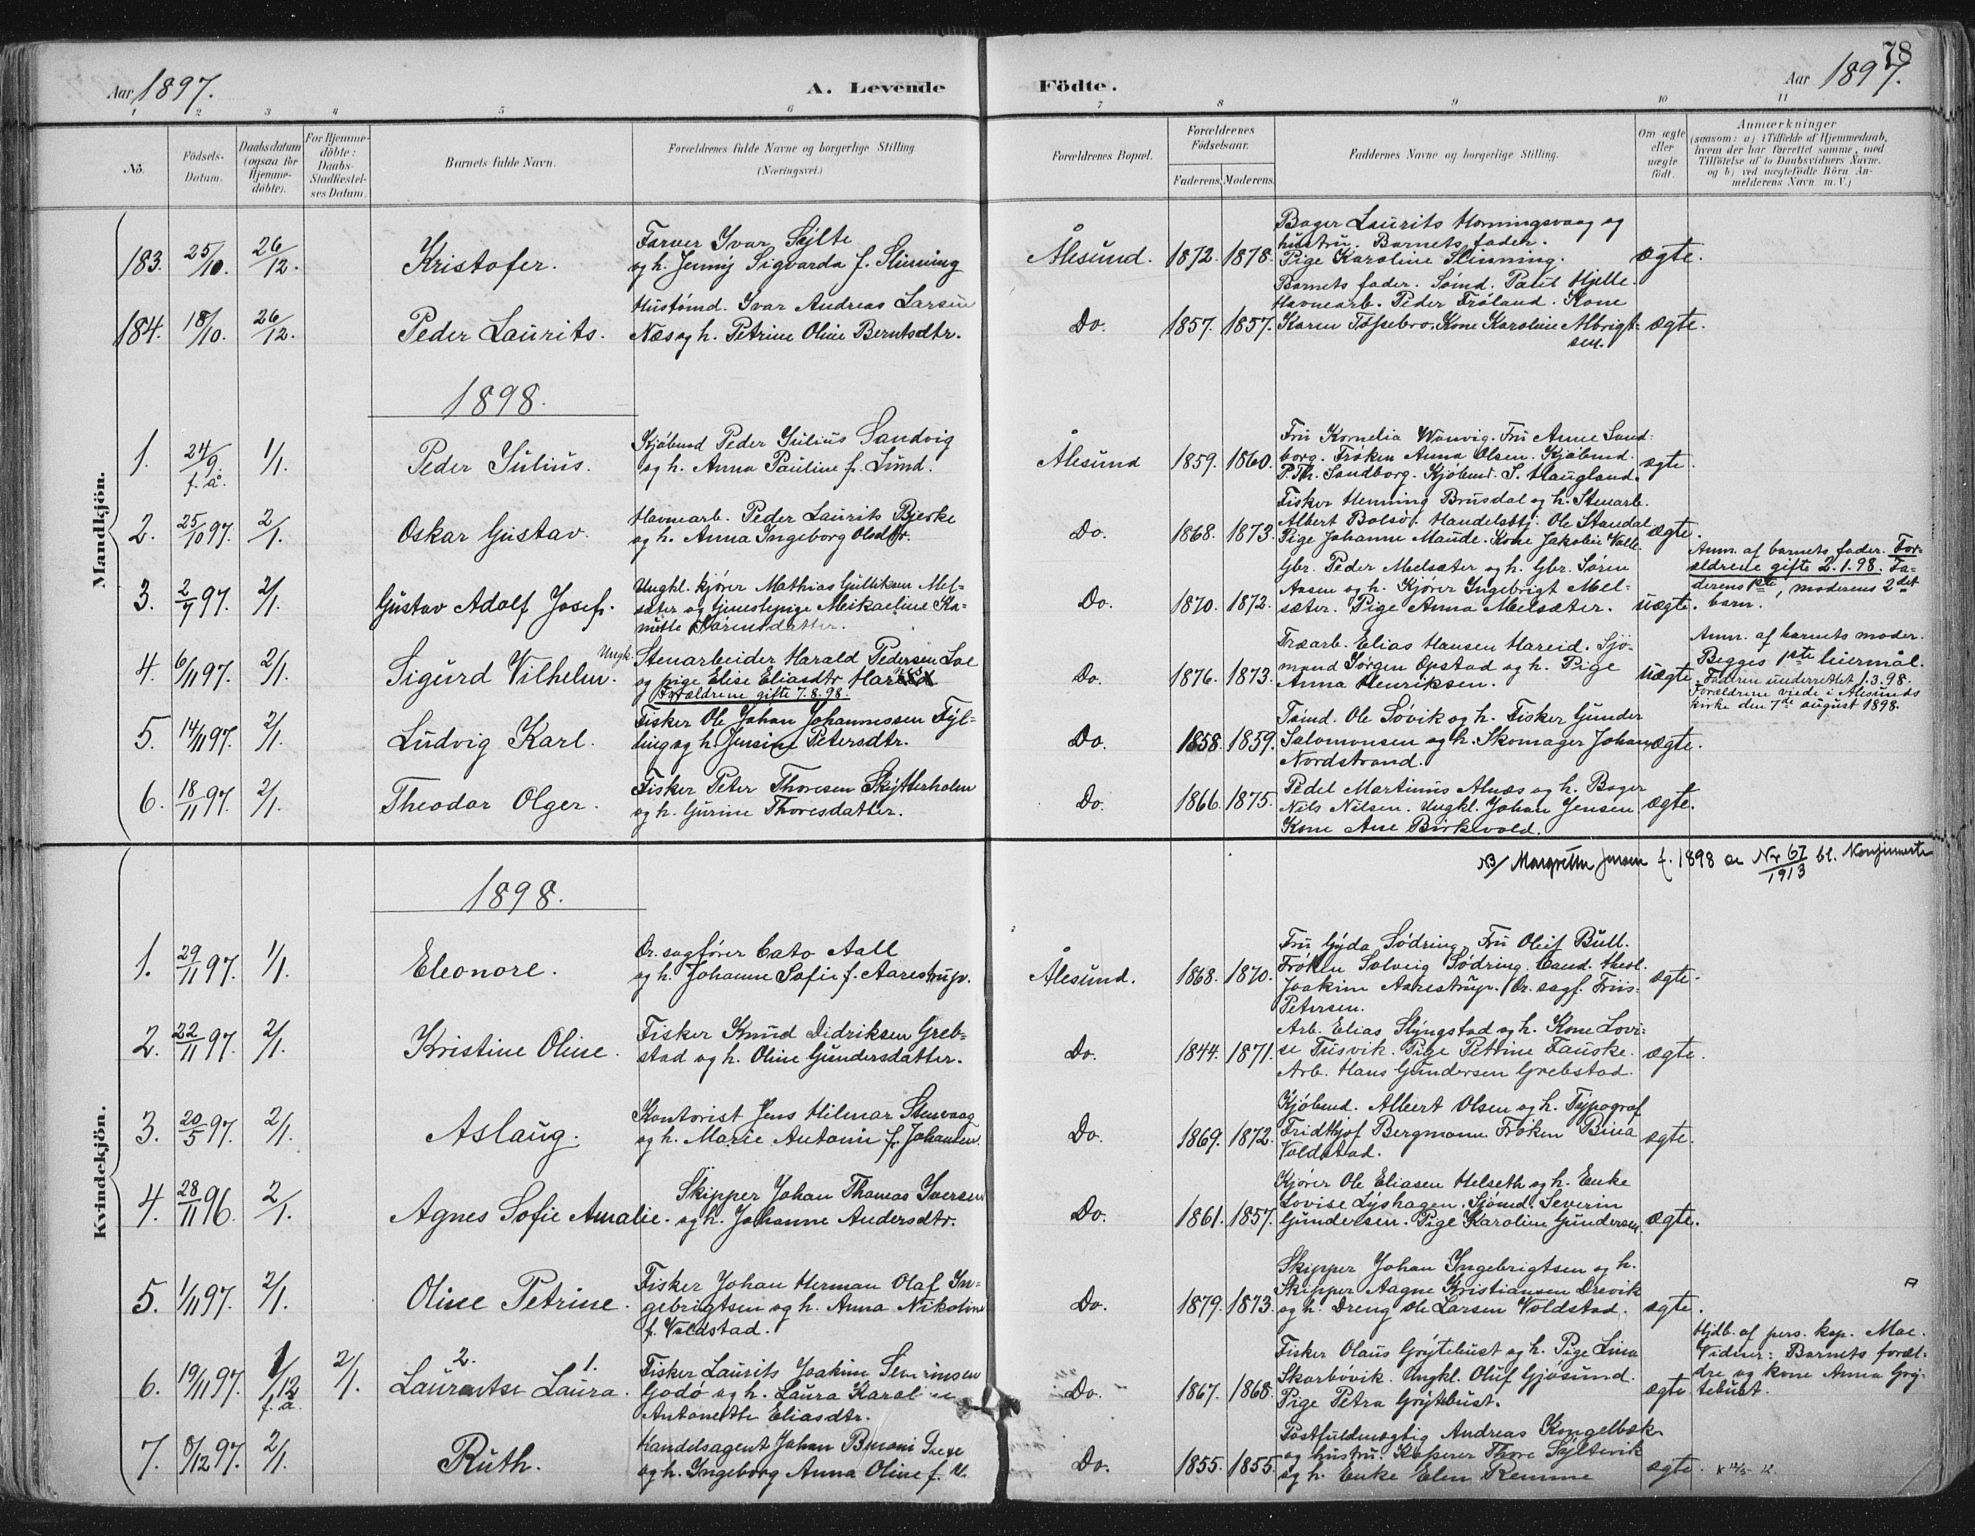 78
Aar 1897.
A. Levende Födte.
Aar 1897.
1 2 3 4 5 6 7 8 9 10 11
No.
Födsels-Datum.
Daabsdatum (ogsaa for Hjemmedöbte).
For Hjemmedöbte: Daabs-Stadfæstelses Datum.
Barnets fulde Navn.
Forældrenes fulde Navne og borgerlige Stilling. (Næringsvei.)
Forældrenes Bopæl.
Forældrenes Födselsaar.
Faderens. Moderens.
Faddernes Navne og borgerlige Stilling.
Om ægte eller uægte födt.
Anmærkninger
(saasom: a) i Tilfælde af Hjemmedaab, hvem der har forrettet samme, med Tilföielse af to Daabsvidners Navne, og b) ved uægtefödte Börn Anmelderens Navn m. V.)
Mandkjön.
183. 25/10. 26/12. Kristofer.
Farver Ivar Sylte
og h. Jenny Sigvarda f. Slinning
Ålesund. 1872. 1878.
Bager Laurits Honningsvaag og
hustru. Barnets fader.
Pige Karoline Slinning.
ægte.
184. 18/10. 26/12. Peder Laurits.
Hustømd. Ivar Andreas Larsen
Næs og h. Petrine Oline Berntsdtr.
Do. 1857. 1857.
Barnets fader. Sømd. Paul Hjelle.
Havnearb. Peder Frøland. Kone
Karen Tøssebro. Kone Karoline Albrigt-
sen.
ægte.
1898.
1. 24/9 f. å. 1/1. Peder Julius.
Kjøbmd Peder Julius Sandvig
og h. Anna Pauline f. Lund.
Ålesund 1859. 1860.
Fru Kornelia Wanvig. Fru Anne Sand-
borg. Frøken Anna Olsen. Kjøbmd.
P. Th. Sandborg. Kjøbmd. S. Haugland.
ægte.
2. 25/10 97. 2/1. Oskar Gustav.
Havnearb. Peder Laurits Bjerke
og h. Anna Ingeborg Olsdtr.
Do. 1868. 1873.
Fisker Henning Brusdal og h. Stenarb.
Albert Bolsø. Handelsttj. Ole Standal
Pige Johanne Maude. Kone Jakobie Valle.
ægte.
3. 2/7 97. 2/1. Gustav Adolf Josef.
Ungkl. kjører Mathias Gullikson Mel-
sæter og tjenestepige Mikaeline Ka-
mitte Sørensdatter.
Do. 1870. 1872.
Gbr. Peder Melsæter og h. Gbr. Søren
Aasen og h. Kjører Ingebrigt Mel-
sæter. Pige Anna Melsæter.
uægte.
Anm. af barnets fader. For-
ældrene gifte 2.1.98. Fa-
derens 1ste, moderens 2det
barn.
4. 6/11 97. 2/1. Sigurd Vilhelm.
Ungk. Stenarbeider Harald Pedersen Loe
og pige Elise Eliasdtr Hareid
Forældrene gifte 7.8.98.
Do. 1876. 1873.
Træarb. Elias Hansen Hareid. Sjö-
mand Jørgen Opstad og h. Pige
Anna Henriksen.
uægte.
Anm. af barnets moder.
Begges 1ste leiermål.
Faderen underrettet 1.3.98.
Forældrene viede i Ålesunds
kirke den 7de august 1898.
5. 14/11 97. 2/1. Ludvig Karl.
Fisker Ole Johan Johannessen Fyl-
ling og h. Jensine Petersdtr.
Do. 1858. 1859.
Tømd. Ole Søvik og h. Fisker Gunder
Salomonsen og h. Skomager Johan
Nordstrand.
ægte.
6. 18/11 97. 2/1. Theodor Olger.
Fisker Peter Thoresen Skytterholm
og h. Gurine Thoresdatter.
Do. 1866. 1875.
Pedel Martinus Alnæs og h. Bager
Nils Nilsen. Ungkl. Johan Jensen
Kone Ane Birkevold.
ægte.
NB/ Margrethe Jensen f. 1898 se Nr 67/1913 bl. Konfirmerte
Kvindekjön.
1898.
1. 29/11 97. 1/1. Eleonore.
Or. sagfører Cato Aall
og h. Johanne Sofie f. Aarestrup.
Ålesund. 1868. 1870.
Fru Gyda Sødring. Fru Oleif Bull.
Frøken Solveig Sødring. Cand. theol.
Joakim Aarestrup. Or. sagf. Friis-
Petersen.
ægte.
2. 22/11 97. 2/1. Kristine Oline.
Fisker Knud Didriksen Greb-
stad og h. Oline Gundersdatter.
Do. 1844. 1871.
Arb. Elias Slyngstad og h. Kone Lovi-
se Tusvik. Pige Petrine Fauske.
Arb. Hans Gundersen Grebstad.
ægte.
3. 20/5 97. 2/1. Aslaug.
Kontorist Jens Hilmar Stenvaag
og h. Marie Antonie f. Johansen.
Do. 1869. 1872.
Kjøbmd. Albert Olsen og h. Typograf
Fridthjof Bergmann. Frøken Bina
Voldstad.
ægte.
4. 28/11 96. 2/1. Agnes Sofie Amalie.
Skipper Johan Thomas Iversen
og h. Johanne Andersdtr.
Do. 1861. 1857.
Kjører Ole Eliasen Helseth og h. Enke
Lovise Lyshagen. Sjømd. Severin
Gundersen. Pige Karoline Gundersen
ægte.
5. 1/11 97. 2/1. Oline Petrine.
Fisker Johan Herman Olaf In-
gebrigtsen og h. Anna Nikoline
f. Voldstad.
Do. 1879. 1873.
Skipper Johan Ingebrigtsen og h.
Skipper Aagne Kristiansen Drevik
og h. Dreng Ole Larsen Voldstad.
ægte.
6. 19/11 97. 1/12 f. a. 2/1. Laurentse Laura.
2. 1.
Fisker Laurits Joakim Severinsen
Godø og h. Laura Karoline
Antonette Eliasdtr.
Do. 1867. 1868.
Fisker Olaus Grytebust og h. Pige Lina
Skarbøvik. Ungkl. Oluf Gjøsund.
Pige Petra Grytebust.
ægte
Hjdb. af pers. kap. Moe.
Vidner: Barnets foræl-
dre og kone Anna Gry-
tebust.
7. 8/12 97. 2/1. Ruth.
Handelsagent Johan Benoni
og h. Ingeborg Anna Oline f.
Do. 1855. 1855.
Postfuldmægtig Andreas Kongelbæk
og hustru. Kasserer Thore Syltevik
og h. Enke Elen Remme
ægte.